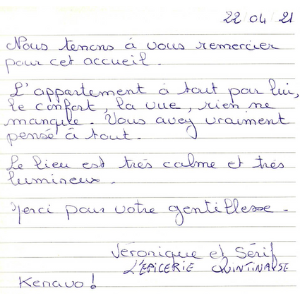 22 04 21
Nous tenons à vous remercier
pour cet accueil.
L'appartement à tout par lui,
le confort, la vue, rien ne
manque. Vous avez vraiment
pensé à tout.
Le lieu est très calme et très
lumineux.
Merci pour votre gentillesse.
Véronique et
L'EPICERIE QUINTINAISE
Kenavo!